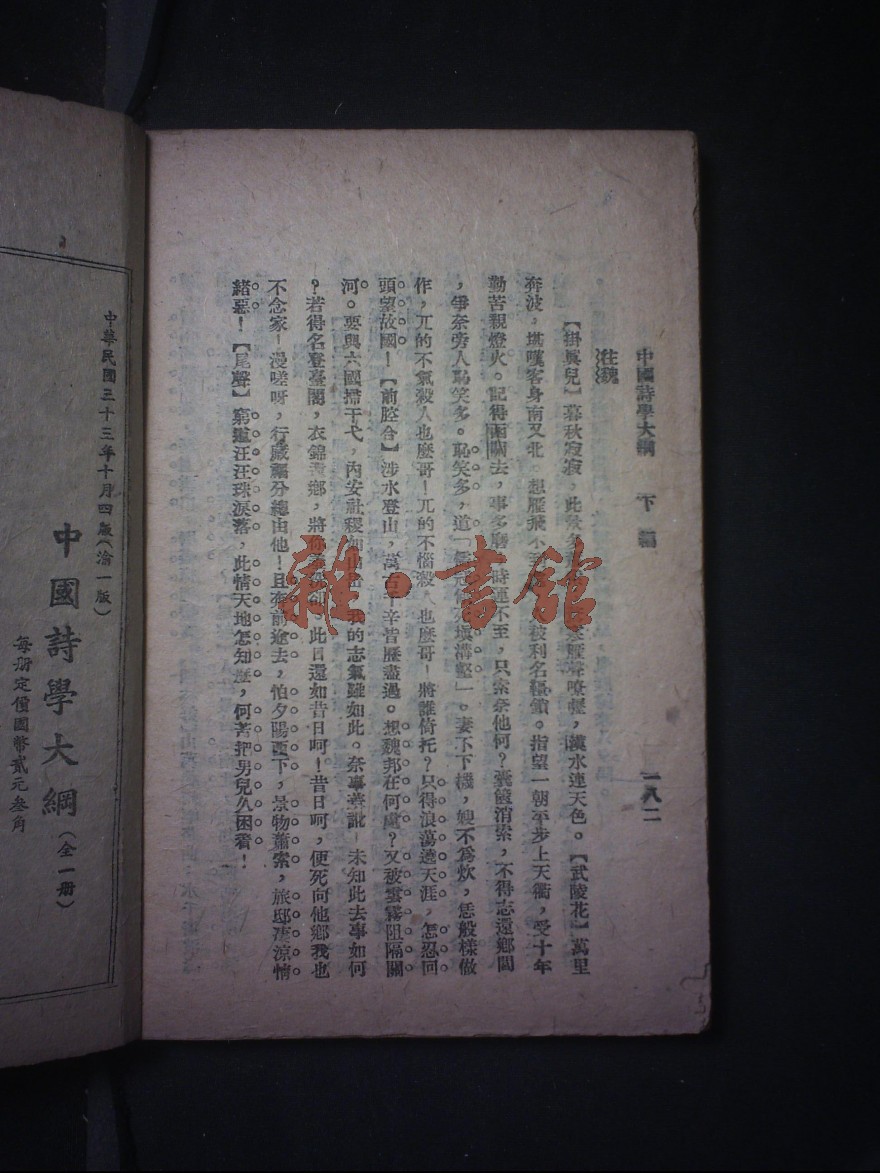 中國詩學大綱 下編 一八二
往魏
【掛真兒】暮秋寂寂,此 聲嘹嚦,漢水連天色。【武陵花】萬里
奔波,堪嘆客身南又北。想雁飛不至 被利名韁鎖。指望一朝平步上天衢,受十年
勤苦親燈火。記得南關去,事多磨,時運不至,只索奈他何?囊篋消索,不得志還鄉閭
,爭奈旁人恥笑多。恥笑多,道「儒冠 填溝壑」。妻不下機,嫂不爲炊,恁般樣做
作,兀的不氣殺人也麼哥!兀的不惱殺人也麼哥!將誰倚托?只得浪蕩遶天涯,怎忍回
頭望故國!【前腔合】涉水登山,萬苦千辛皆歷盡過。想魏邦在何處?又被雲霧阻隔關
河。要與六國掃干戈,內安社稷如山 我的志氣雖如此。奈事舛訛!未知此去事如何
?若得名登臺閣,衣錦 鄉,將你 此日還如昔日呵!昔日呵,便死向他鄉我也
不念家!漫嗟呀,行藏福分總由他!且奔前途去,怕夕陽西下,景物蕭索,旅邸凄涼情
緒惡!【尾聲】窮途汪汪珠淚落,此情天地怎知應,何苦把男兒久困着!
中華民國三十三年十月四版(渝一版)
中國詩學大綱(全一册)
每册定價國幣貳元叁角
雜·書館